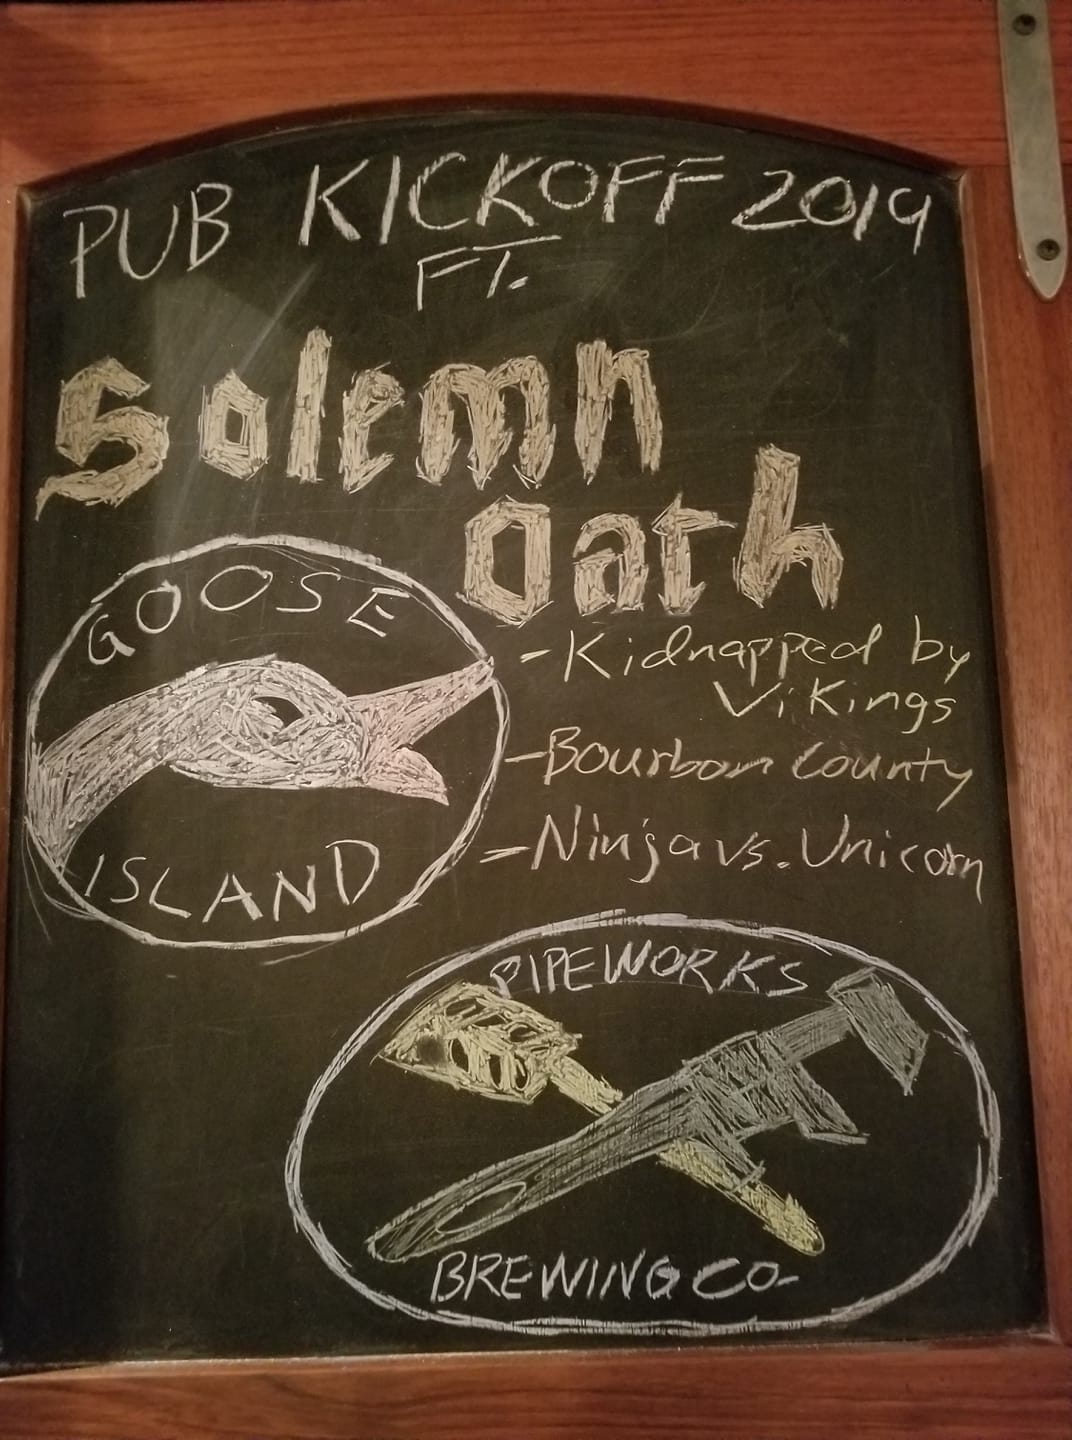 PUB KICKOFF 2019
FT.
Solemn
Oath
GOOSE
ISLAND
- Kidnapped by
Vikings
- Bourbon County
- Ninja vs. Unicorn
PIPEWORKS
BREWING CO-